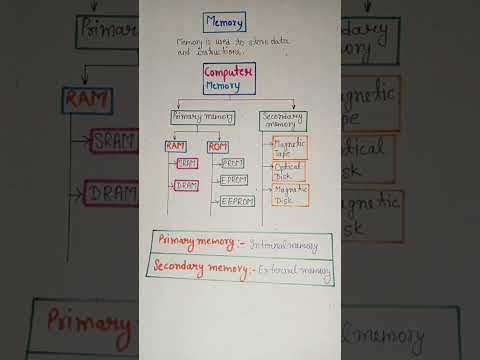 Memory
Memory is used to store data
and instructions.
Computer
Memory
Primary memory
Secondary
memory
RAM
ROM
SRAM
DRAM
PROM
EPROM
EEPROM
Magnetic
Tape
Optical
Disk
Magnetic
Disk
Primary memory:- Internal memory
Secondary memory:- External memory
Primary
RAM
SRAM
DRAM
memory
agnetic
ape
ptical
isk
agnetic
isk
Primary
memory